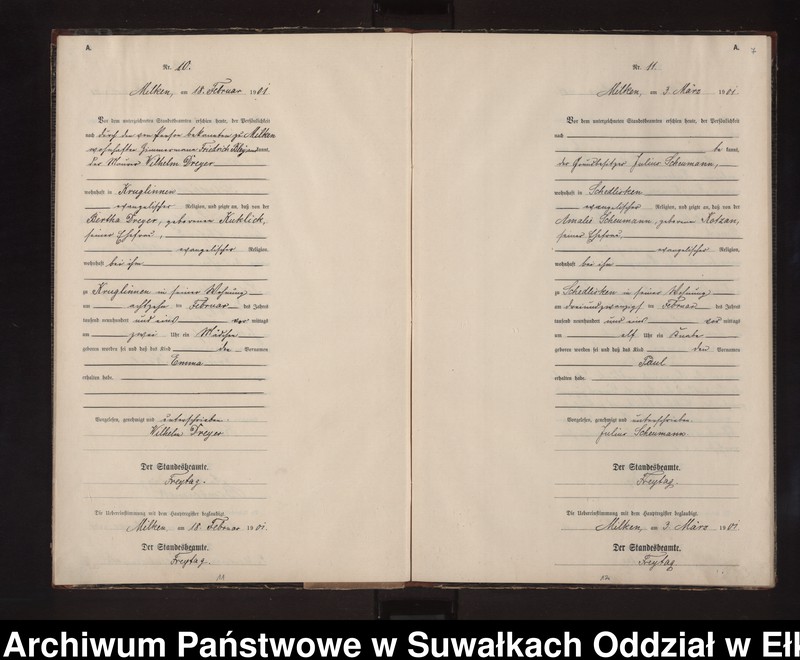 A.
Nr. 10.
Milken, am 18. Februar 1901.
Vor dem unterzeichneten Standesbeamten erschien heute, der Persönlichkeit
nach durch den von Person bekannten zu Milken
wohnhaften Zimmermann Friedrich kannt,
der Maurer Wilhelm Dreyer
wohnhaft in Kruglinnen
evangelischer Religion, und zeigte an, daß von der
Bertha Dreyer, geborenen Kuklick,
seiner Ehefrau,
evangelischer Religion,
wohnhaft bei ihm
zu Kruglinnen in seiner Wohnung
am achtzehn ten Februar des Jahres
tausend neunhundert und eins vor mittags
um zwei Uhr ein Mädchen
geboren worden sei und daß das Kind den Vornamen
Emma
erhalten habe.
Vorgelesen, genehmigt und unterschrieben.
Wilhelm Dreyer
Der Standesbeamte.
Freytag.
Die Uebereinstimmung mit dem Hauptregister beglaubigt.
Milken, am 18. Februar 1901.
Der Standesbeamte.
Freytag.
A.
7
Nr. 11.
Milken, am 3. März 1901.
Vor dem unterzeichneten Standesbeamten erschien heute, der Persönlichkeit
nach
be kannt,
der Grundbesitzer Julius Scheumann,
wohnhaft in Schedlisken
evangelischer Religion, und zeigte an, daß von der
Amalie Scheumann, geborene Kotzan,
seiner Ehefrau
evangelischer Religion,
wohnhaft bei ihm
zu Schedlisken in seiner Wohnung
am dreiundzwanzigs ten Februar des Jahres
tausend neunhundert und eins vor mittags
um elf Uhr ein Knabe
geboren worden sei und daß das Kind den Vornamen
Paul
erhalten habe.
Vorgelesen, genehmigt und unterschrieben.
Julius Scheumann
Der Standesbeamte.
Freytag.
Die Uebereinstimmung mit dem Hauptregister beglaubigt.
Milken, am 3. März 1901
Der Standesbeamte.
Freytag
Archiwum Państwowe w Suwałkach Oddział w Ełk